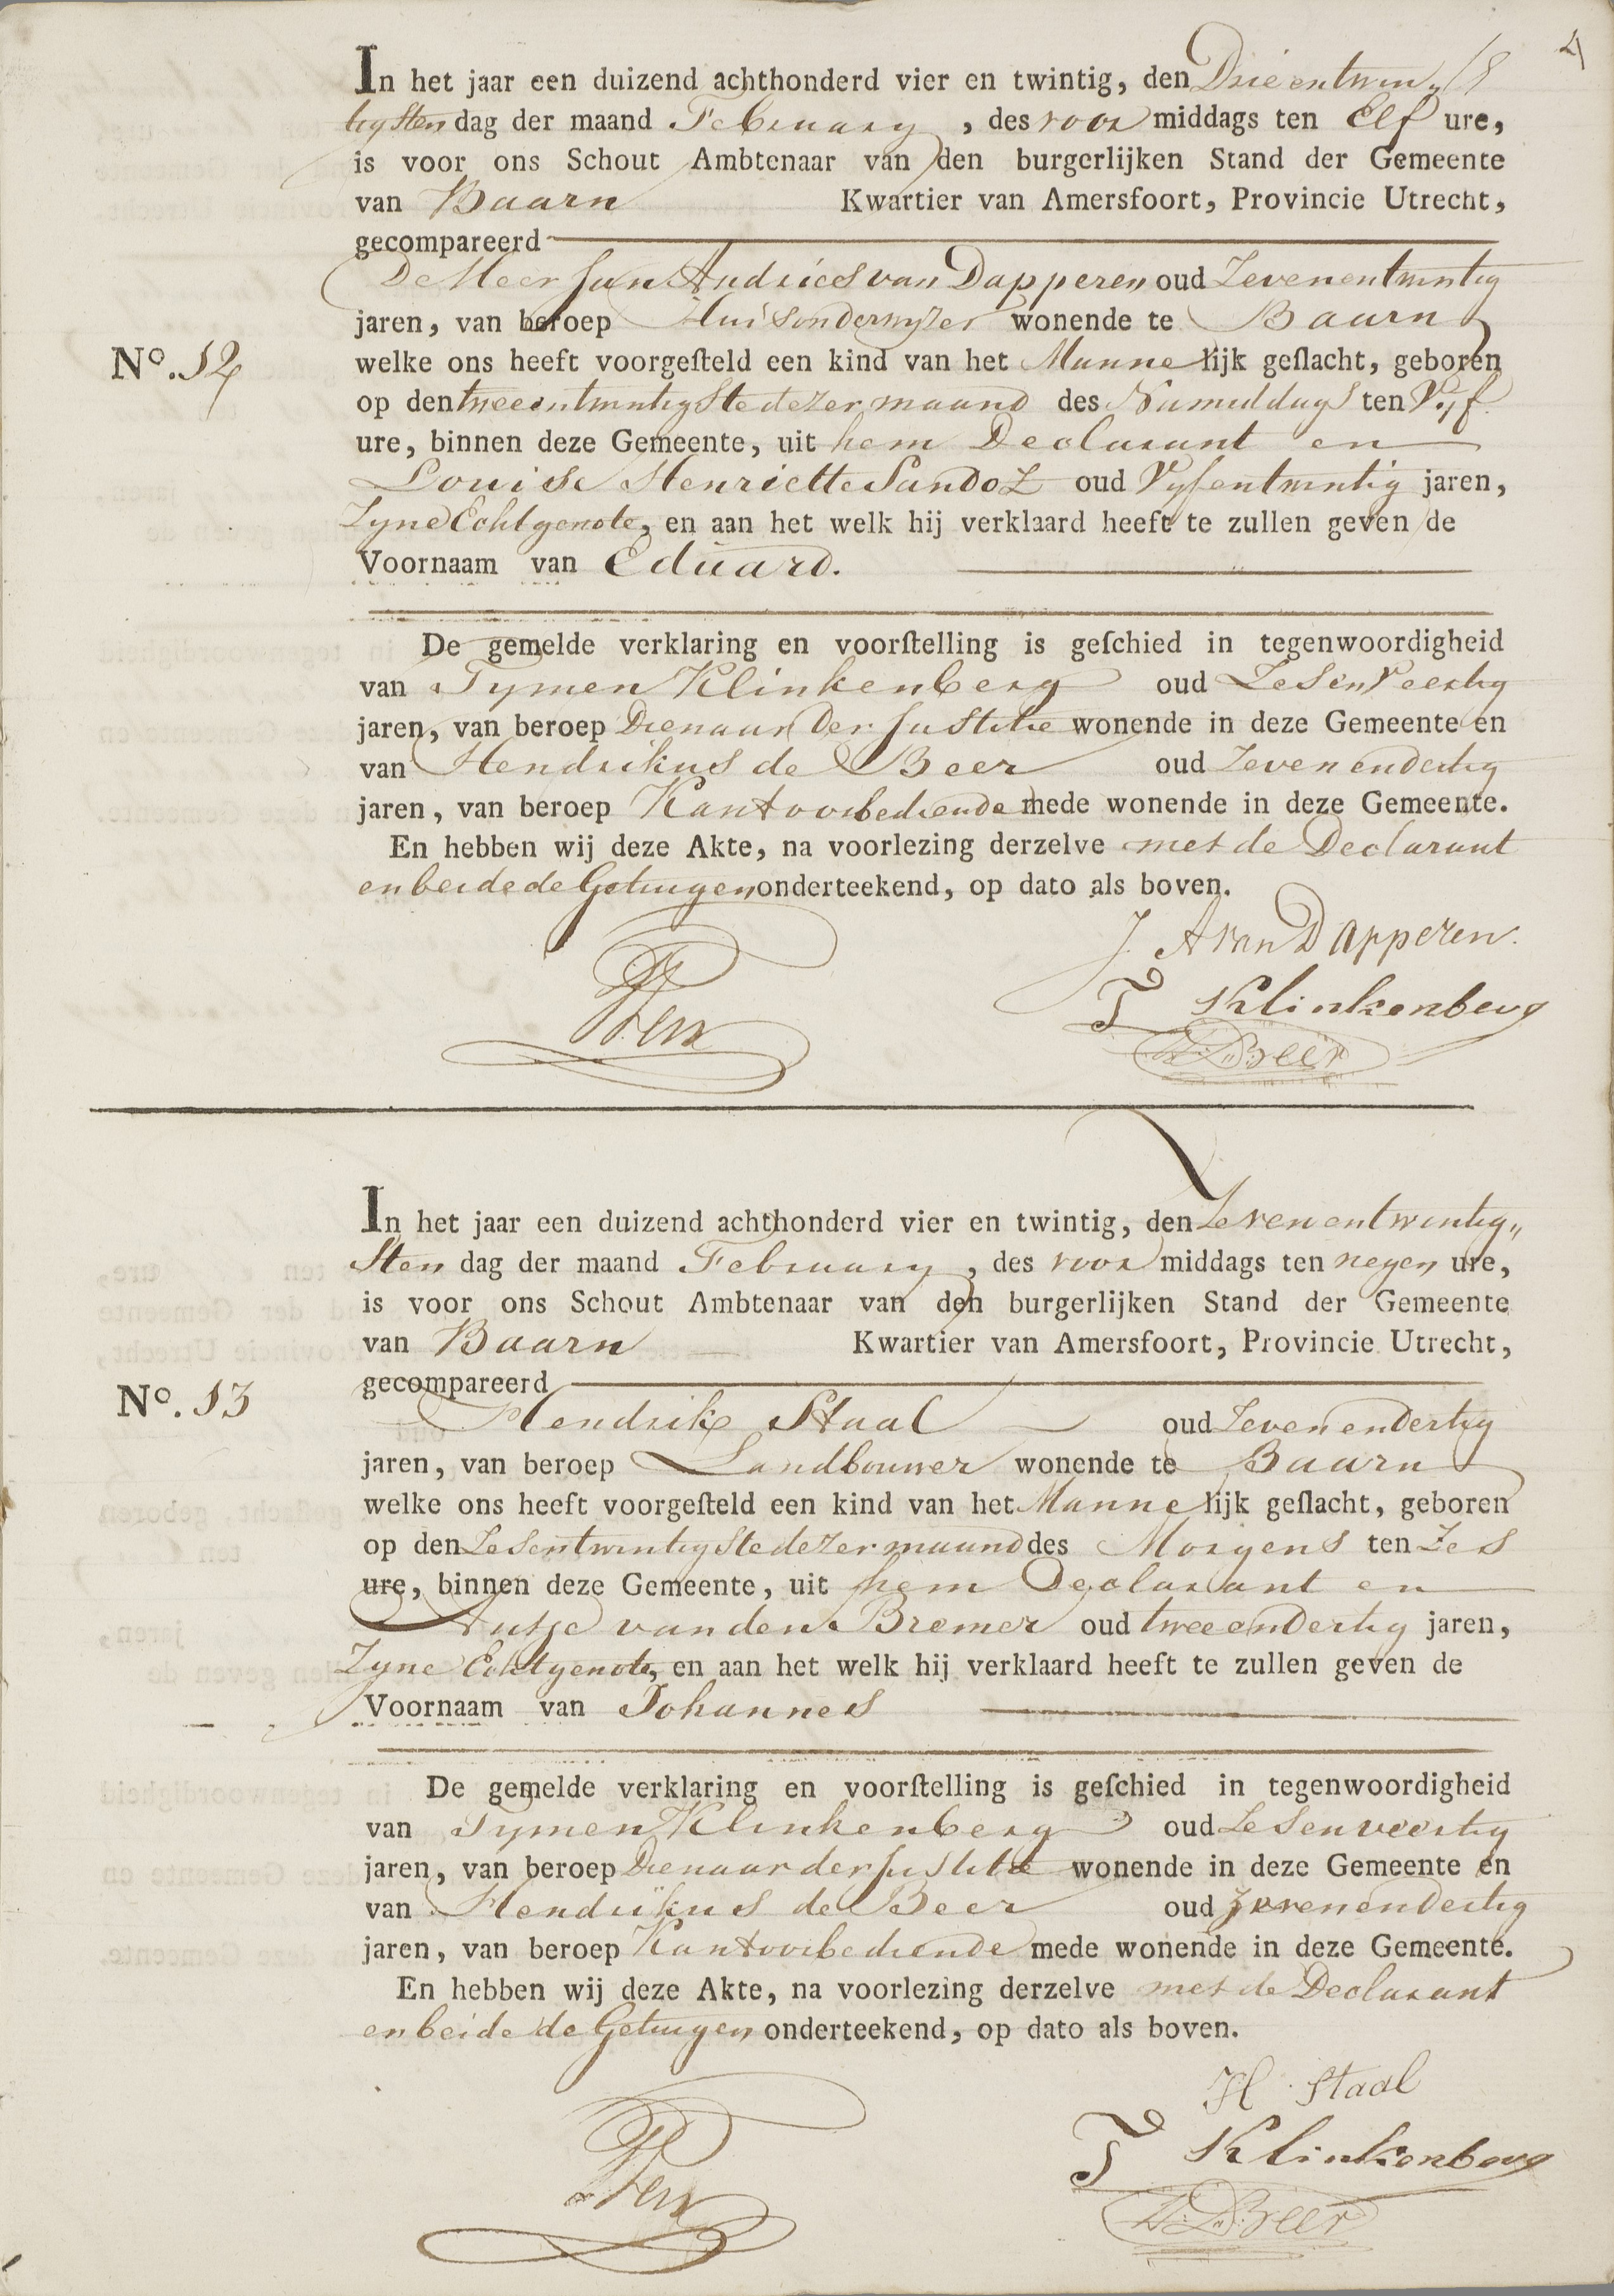 4
In het jaar een duizend achthonderd vier en twintig, den Drieentwin„
tigsten dag der maand February , des voor middags ten Elf ure,
is voor ons Schout Ambtenaar van den burgerlijken Stand der Gemeente
van Baarn Kwartier van Amersfoort, Provincie Utrecht,
gecompareerd
De Heer Jan Andries van Dapperen oud Zevenentwintig
jaren, van beroep Huisonderwyzer wonende te Baarn
No. 12
welke ons heeft voorgeſteld een kind van het Manne lijk geſlacht, geboren
op den tweeentwintigste dezer maand des Namiddags ten Vyf
ure, binnen deze Gemeente, uit hem Declarant en
Louise Henriette Sandoz oud Vyfentwintig jaren,
Zyne Echtgenote, en aan het welk hij verklaard heeft te zullen geven de
Voornaam van Eduard.
De gemelde verklaring en voorſtelling is geſchied in tegenwoordigheid
van Tymen Klinkenberg oud Zesenveertig
jaren, van beroep Dienaar der Justitie wonende in deze Gemeente en
van Hendrikus de Beer oud Zevenendertig
jaren, van beroep Kantoorbediende mede wonende in deze Gemeente.
En hebben wij deze Akte, na voorlezing derzelve met de Declarant
en beide de Getuigen onderteekend, op dato als boven.
J. A van Dapperen.
T Klinkenberg
H. D. Beer
In het jaar een duizend achthonderd vier en twintig, den Zevenentwintig„
sten dag der maand February , des voor middags ten negen ure,
is voor ons Schout Ambtenaar van den burgerlijken Stand der Gemeente
van Baarn Kwartier van Amersfoort, Provincie Utrecht,
gecompareerd
No. 13
Hendrik Staal oud Zevenendertig
jaren, van beroep Landbouwer wonende te Baarn
welke ons heeft voorgeſteld een kind van het Manne lijk geſlacht, geboren
op den Zesentwintigste dezer maand des Morgens ten Zes
ure, binnen deze Gemeente, uit hem Declarant en
Autje van den Bremer oud tweeendertig jaren,
Zyne Echtgenote, en aan het welk hij verklaard heeft te zullen geven de
Voornaam van Johannes
De gemelde verklaring en voorſtelling is geſchied in tegenwoordigheid
van Tymen Klinkenberg oud Zesenveertig
jaren, van beroep Dienaar der Justitie wonende in deze Gemeente en
van Hendrikus de Beer oud Zevenendertig
jaren, van beroep Kantoorbediende mede wonende in deze Gemeente.
En hebben wij deze Akte, na voorlezing derzelve met de Declarant
en beide de Getuigen onderteekend, op dato als boven.
H. Staal
T Klinkenberg
H. D. Beer